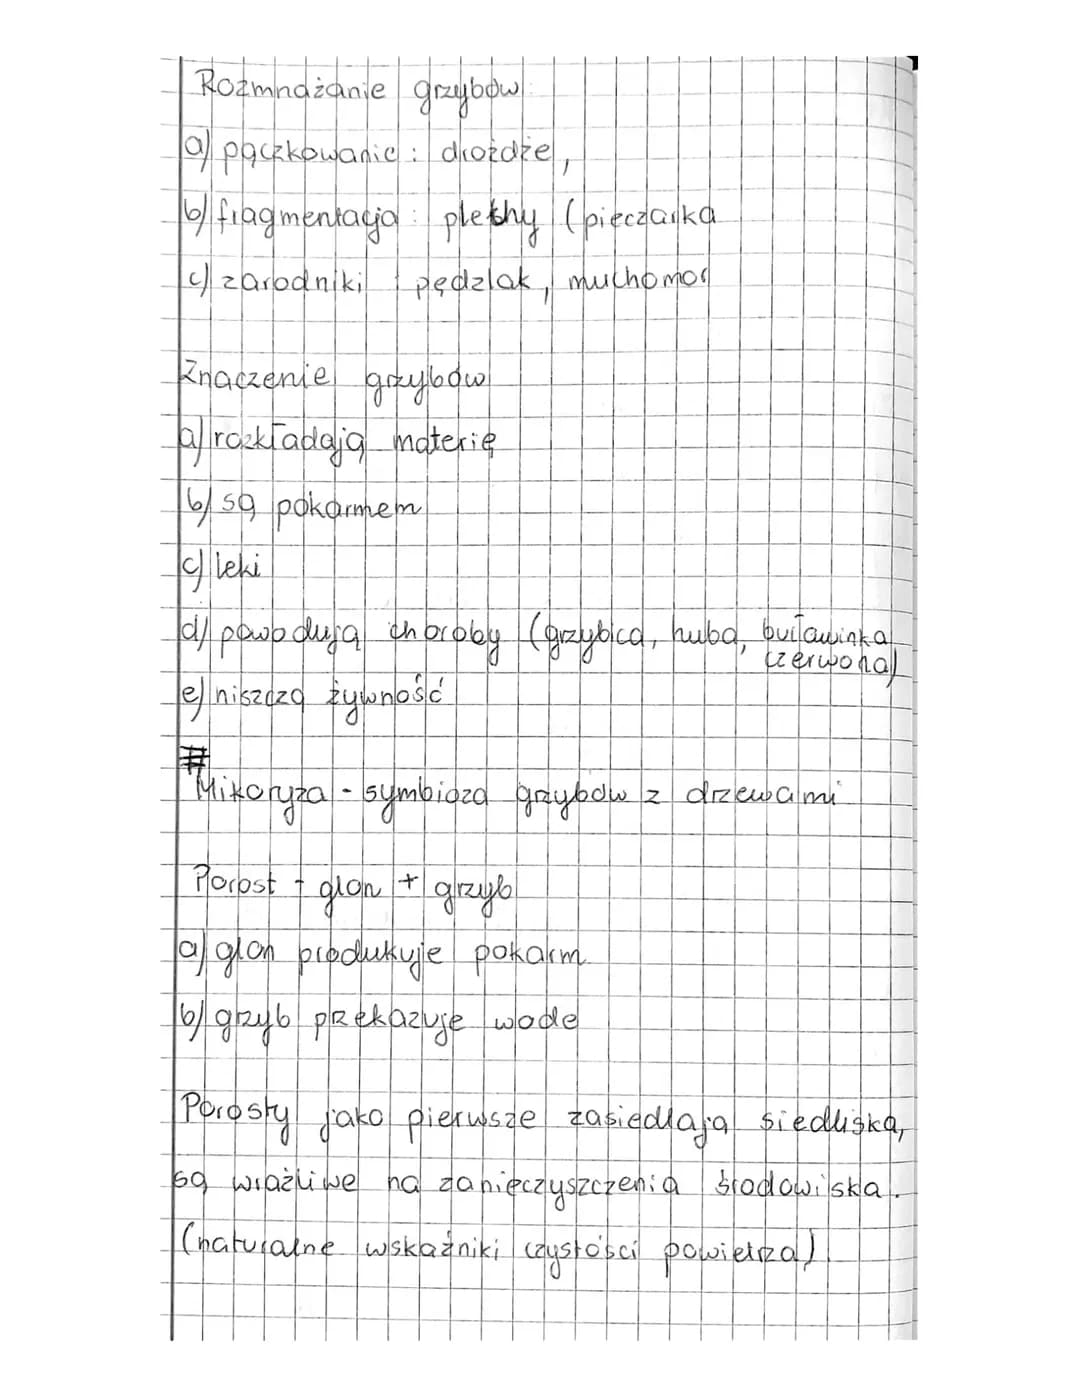 Rozmnażanie grzybów:
a) pączkowanie: drożdże,
b) fragmentacja: plechy (pieczarka
c) zarodniki: pędzlak, muchomor
Znaczenie grzybów
a) rozkładają materię
b) są pokarmem
c) leki
d) powodują choroby (grzybica, huba, buławinka
czerwona)
e) niszczą żywność
#
Mikoryza - symbioza grzybów z drzewami
Porost - glon + grzyb
a) glon produkuje pokarm
b) grzyb przekazuje wodę
Porosty jako pierwsze zasiedlają siedliska,
są wrażliwe na zanieczyszczenia środowiska.
(naturalne wskaźniki czystości powietrza)